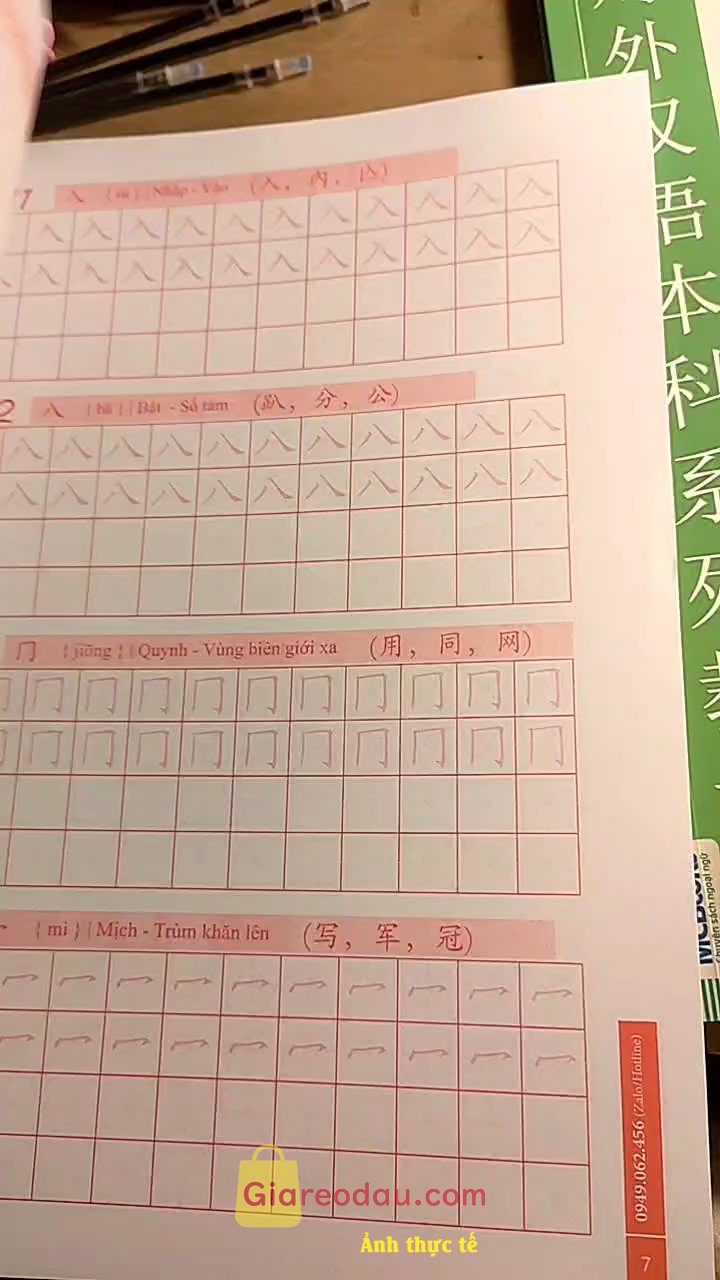 外汉语本科系列
入 | Nhập - Vào (入, 内, 囚)
入 入 入 入 入 入 入 入 入 入 入
入 入 入 入 入 入 入 入 入 入 入
2 八 { bā } | Bát - Số tám (趴, 分, 公)
八 八 八 八 八 八 八 八 八 八 八
八 八 八 八 八 八 八 八 八 八 八
冂 { jiōng } | Quynh - Vùng biên giới xa (用, 同, 网)
冂 冂 冂 冂 冂 冂 冂 冂 冂 冂 冂
冂 冂 冂 冂 冂 冂 冂 冂 冂 冂 冂
{ mì } | Mịch - Trùm khăn lên (写, 军, 冠)
冖 冖 冖 冖 冖 冖 冖 冖 冖 冖 冖
冖 冖 冖 冖 冖 冖 冖 冖 冖 冖 冖
MCBooks
Chuyên sách ngoại ngữ
0949.062.456 (Zalo/Hotline)
7
Giareodau.com
Ảnh thực tế